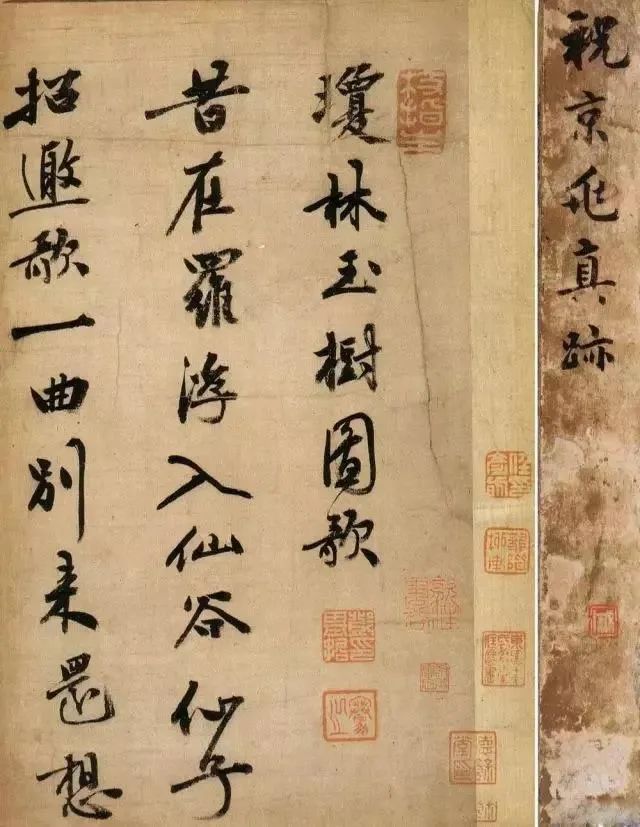 祝京兆真跡
瓊林玉樹圖歌
昔在羅浮入仙谷仙子
招邀歌一曲別來還想
枝指生